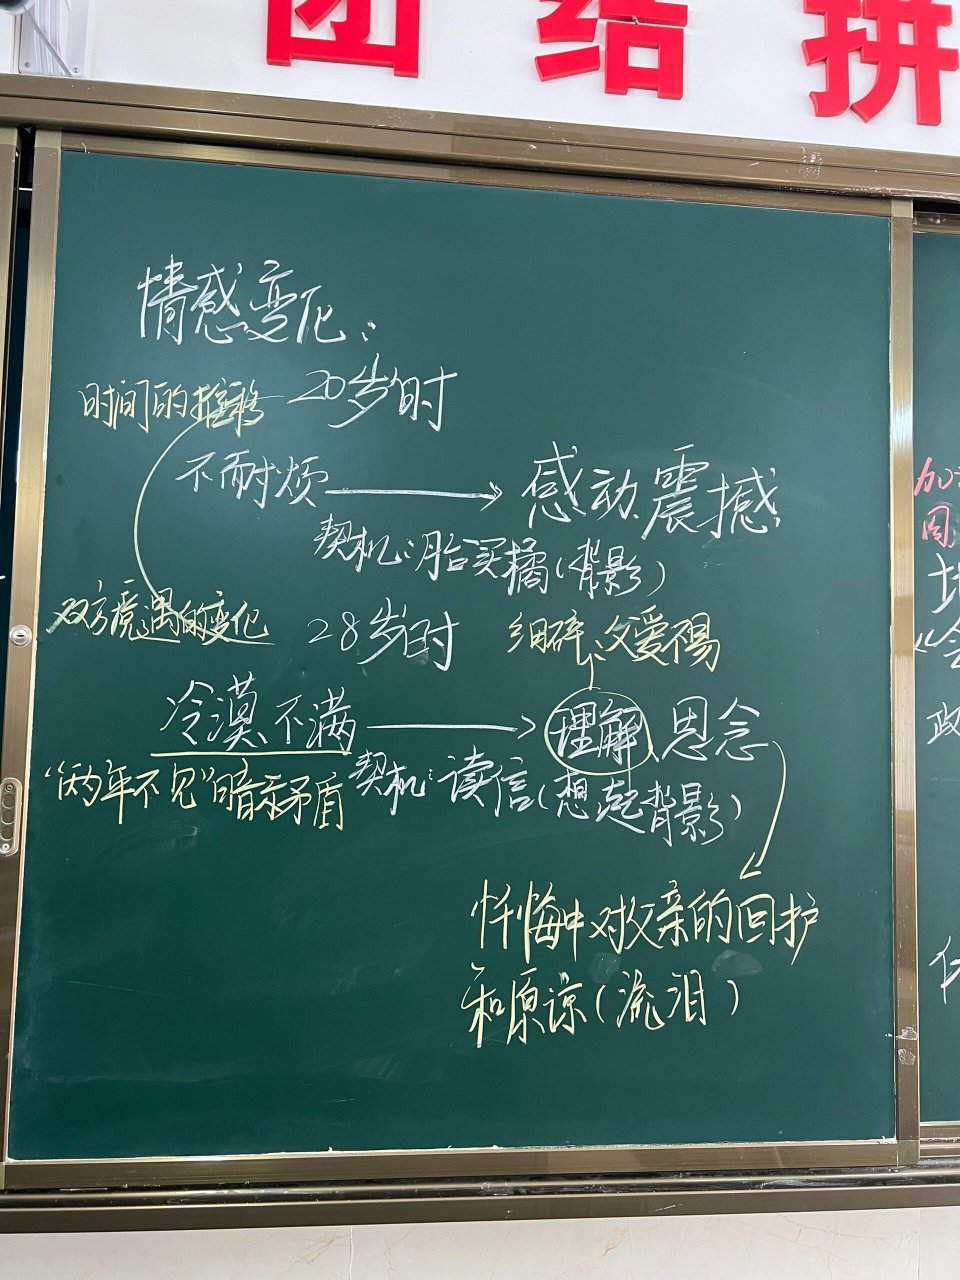 团结拼
情感变化:
时间的推移 20岁时
不耐烦 → 感动、震撼
契机:月台买橘(背影)
双方境遇的变化 28岁时 细碎、父爱不易
冷漠、不满 → 理解、恩念
"两年不见"暗示矛盾 契机:读信(想起背影)
忏悔中对父亲的回护
和原谅(流泪)
加
政